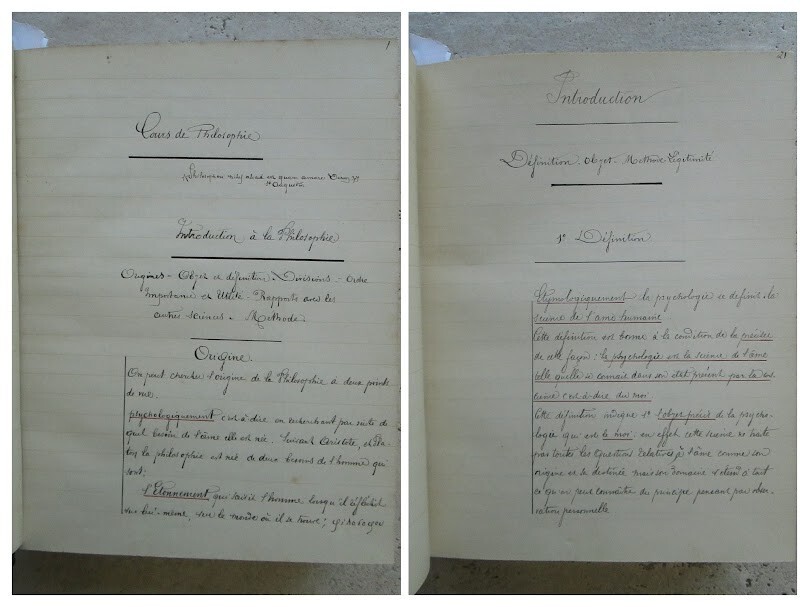 1
Cours de Philosophie
Introduction à la Philosophie
Origines - Objet et définition - Divisions - Ordre
Importance et Utilité - Rapports avec les
autres sciences - Méthode
Origine
On peut chercher l'origine de la Philosophie à deux points
de vue.
psychologiquement c'est-à-dire en recherchant par suite de
quel besoin de l'âme elle est née. Suivant Aristote, et
la philosophie est née de deux besoins de l'homme qui
sont:
l'Etonnement, qui saisit l'homme lorsqu'il réfléchit
sur lui-même, sur le monde où il se trouve;
21
Introduction
Définition. Objet. Méthode Légitimité
1° Définition
Etymologiquement la psychologie se définit: la
science de l'âme humaine
Cette définition est bonne à la condition de la préciser
de cette façon: la psychologie est la science de l'âme
telle qu'elle se connait dans son état présent par la cons
cience c'est-à-dire du moi
Cette définition marque 1° l'objet précis de la psycho-
logie qui est le moi: en effet cette science ne traite
pas toutes les Questions Relatives à l'âme comme son
origine et sa destinée mais son domaine s'étend à tout
ce qu'on peut connaître du principe pensant par obser-
vation personnelle